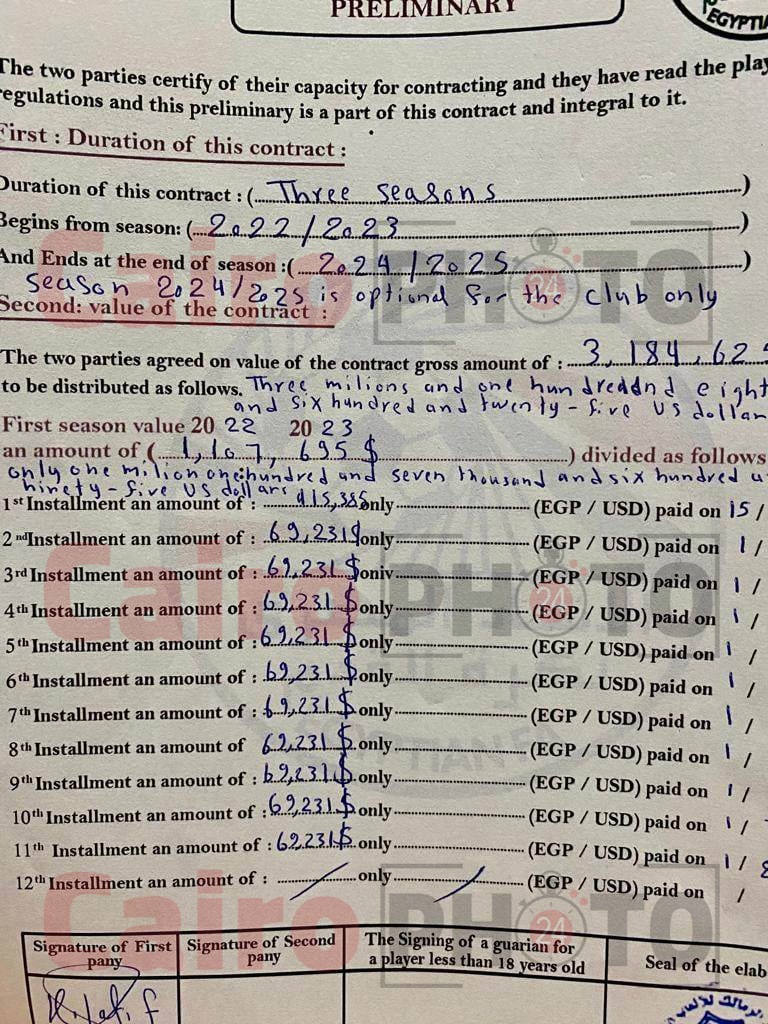 PRELIMINARY
EGYPTIA
The two parties certify of their capacity for contracting and they have read the play
regulations and this preliminary is a part of this contract and integral to it.
First : Duration of this contract :
Duration of this contract : ( Three seasons )
Begins from season: ( 2022/2023 )
And Ends at the end of season :( 2024/2025 )
season 2024/2025 is optional for the club only
Second: value of the contract :
The two parties agreed on value of the contract gross amount of : 3,184,625
to be distributed as follows. Three milions and one hundreadnd eight
and six hundred and twenty-five US dollar
First season value 20 22 20 23
an amount of ( 1,107,695 $ ) divided as follows
only one milion one hundred and seven thousand and six hundred a
ninety-five US dollars
1st Installment an amount of : 415,385 only (EGP / USD) paid on 15 /
2nd Installment an amount of : 69,231$ only (EGP / USD) paid on 1 /
3rd Installment an amount of : 69,231 $ only (EGP / USD) paid on 1 /
4th Installment an amount of : 69,231 $ only (EGP / USD) paid on 1 /
5th Installment an amount of : 69,231 $ only (EGP / USD) paid on 1 /
6th Installment an amount of : 69,231 $ only (EGP / USD) paid on 1 /
7th Installment an amount of : 69,231 $ only (EGP / USD) paid on 1 /
8th Installment an amount of 69,231 $ only (EGP / USD) paid on 1 /
9th Installment an amount of : 69,231 $ only (EGP / USD) paid on 1 /
10th Installment an amount of : 69,231 $ only (EGP / USD) paid on 1 /
11th Installment an amount of : 69,231$ only (EGP / USD) paid on 1 / 8
12th Installment an amount of : / only / (EGP / USD) paid on /
Signature of First pany
Signature of Second pany
The Signing of a guarian for
a player less than 18 years old
Seal of the elab
الزمالك للألعاب
Cairo PHOTO 24
Cairo PHOTO 24
Cairo PHOTO 24